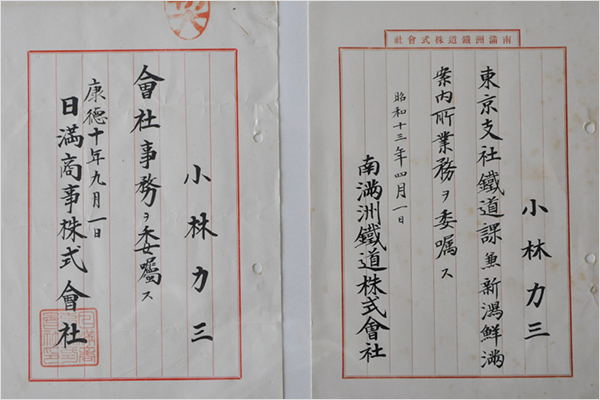 小林力三
會社事務ヲ委嘱ス
康德十年九月一日
日満商事株式會社
社會式株道鐵洲滿南
小林力三
東京支社鐵道課兼新潟鮮満
案内所業務ヲ委嘱ス
昭和十三年四月一日
南満洲鐵道株式會社